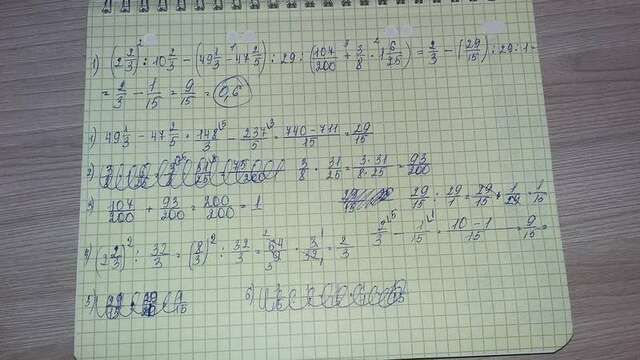 1) (2 2/3)² : 10 2/3 - (49 1/3 - 47 2/5) : 29 : (107/200 + 3/8 · 1 6/25) = 2/3 - (29/15) : 29 : 1 =
= 2/3 - 1/15 = 9/15 = 0,6
1) 49 1/3 - 47 2/5 = 148/3 - 237/5 = 740-711/15 = 29/15
2) 3/8 · 31/25 = 3·31/8·25 = 93/200
3) 107/200 + 93/200 = 200/200 = 1
29/15 : 29/1 = 29/15 · 1/29 = 1/15
4) (2 2/3)² : 32/3 = (8/3)² : 32/3 = 64/9 · 3/32 = 2/3
2/3 - 1/15 = 10-1/15 = 9/15
5)
6)